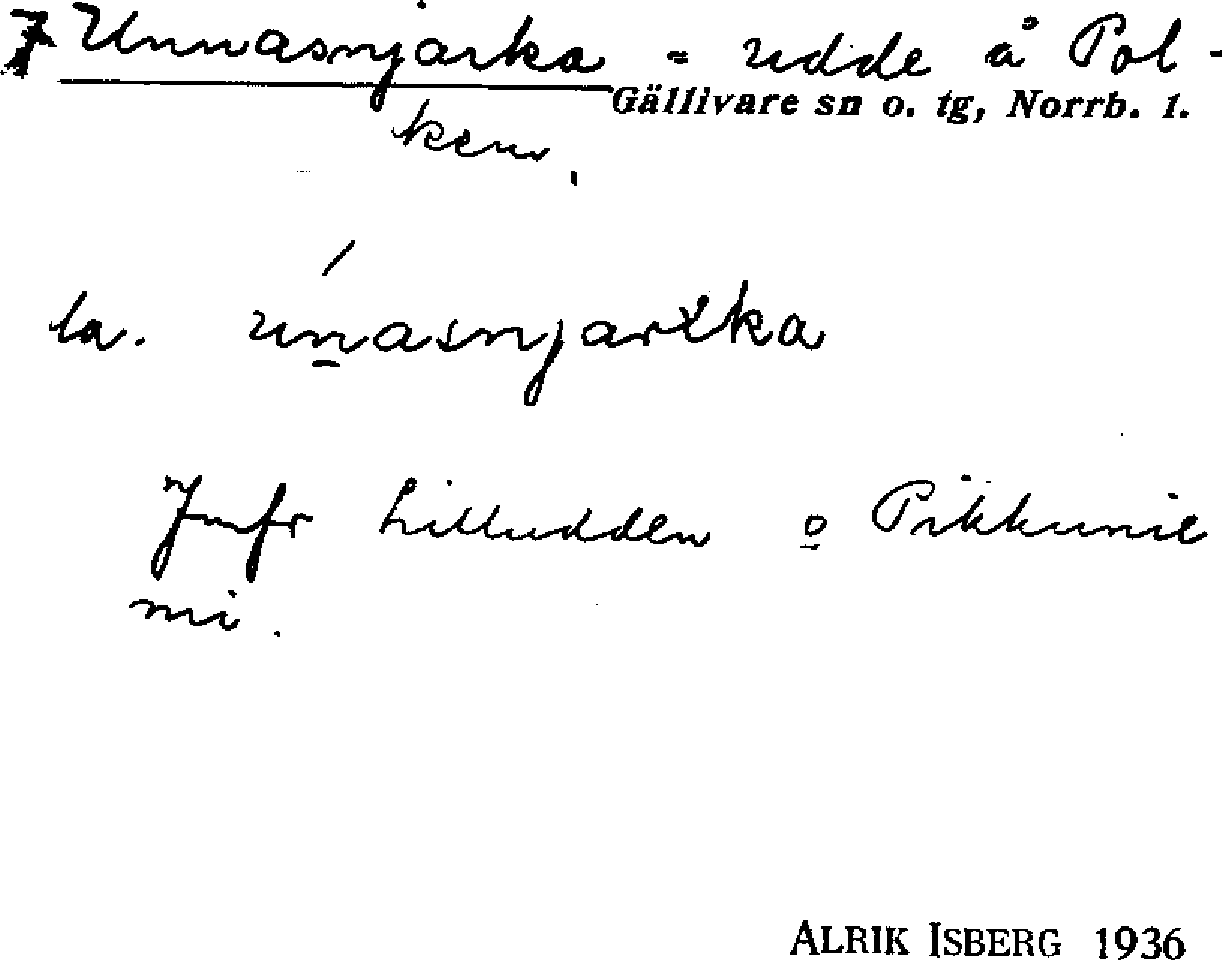 Unnasnjarka = udde å Pol-
Gällivare sn o. tg, Norrb. l.
ken.
la. unasnjarka
Jmfr Lilludden o Pikkunie
mi.
ALRIK ISBERG 1936